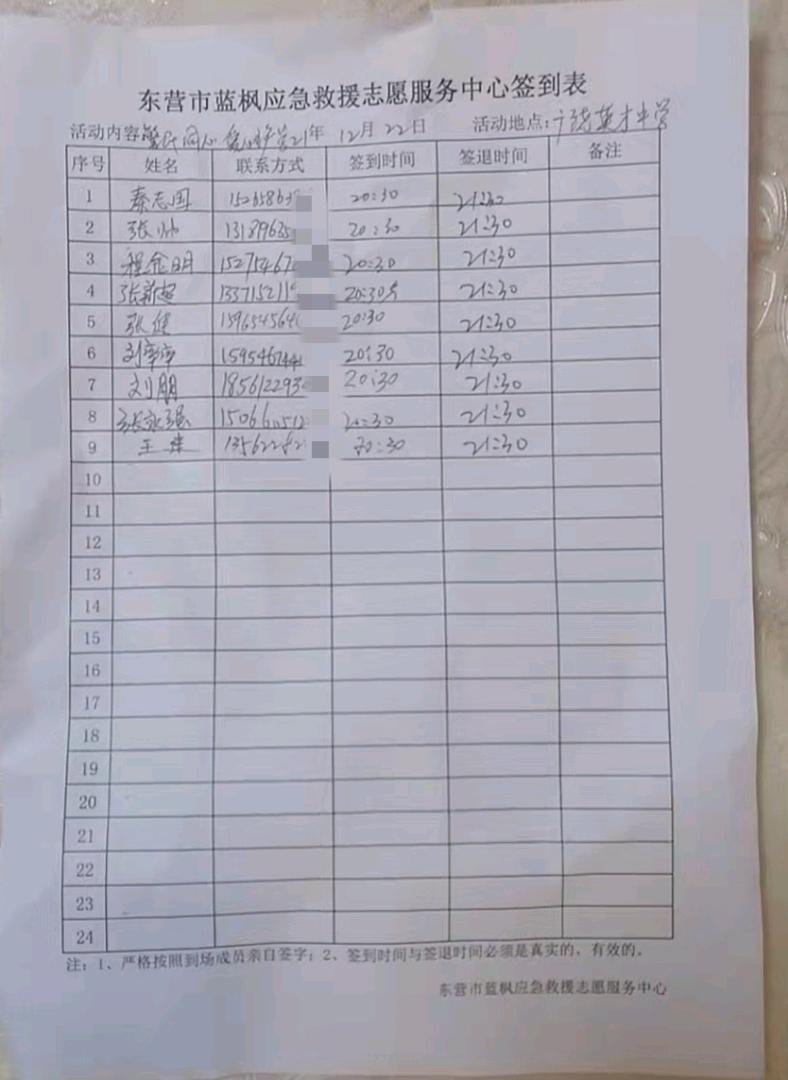 东营市蓝枫应急救援志愿服务中心签到表
活动内容: 警民同心 护学21年 12月22日 活动地点: 英才中学
序号 姓名 联系方式 签到时间 签退时间 备注
1 秦志国 15265863 20:30 21:30
2 张帅 13189635 20:30 21:30
3 程金明 15275467 20:30 21:30
4 张新超 133715211 20:30 21:30
5 张健 1596545646 20:30 21:30
6 刘 159546744 20:30 21:30
7 刘朋 185612293 20:30 21:30
8 张永强 150660512 20:30 21:30
9 王 135622821 20:30 21:30
10
11
12
13
14
15
16
17
18
19
20
21
22
23
24
注:1、严格按照到场成员亲自签字;2、签到时间与签退时间必须是真实的,有效的。
东营市蓝枫应急救援志愿服务中心